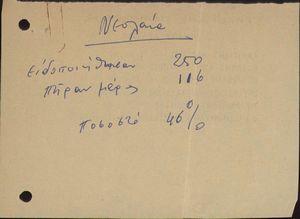 Νεολαία
ειδοποιήθηκαν 250
πήραν μέρος 116
ποσοστό 46%